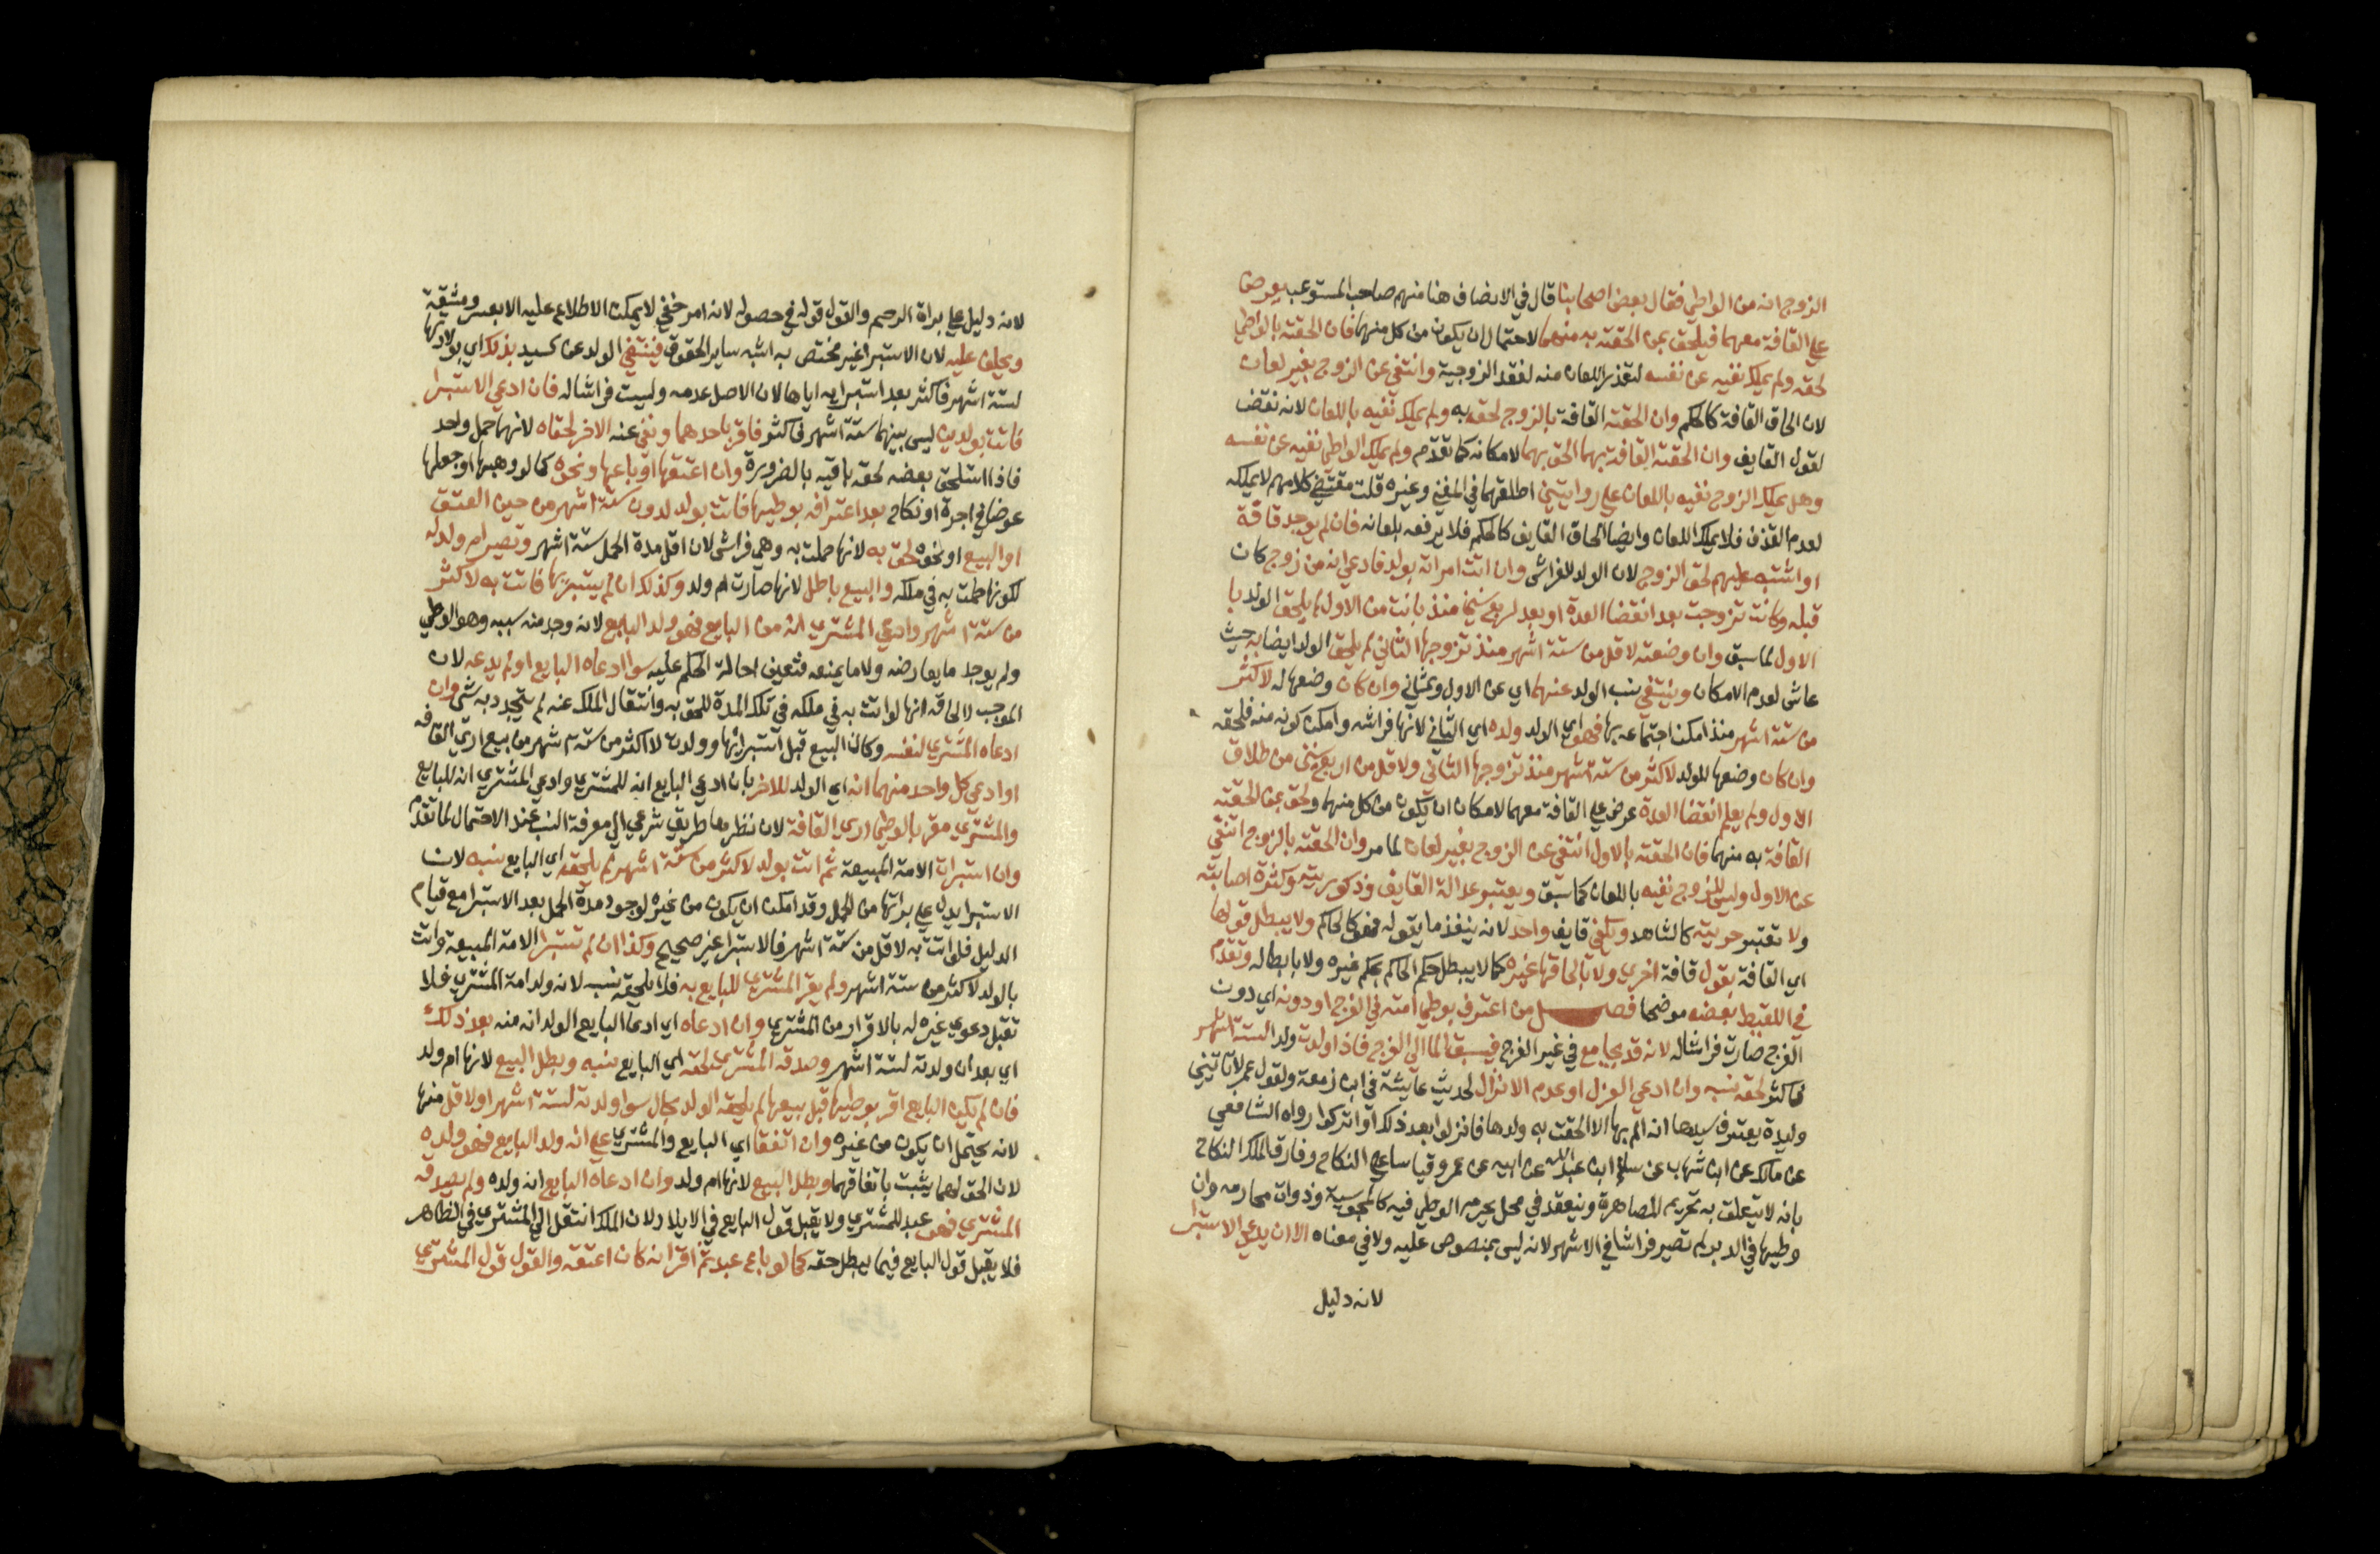 الزوج انه من الواطي فقال بعض اصحابنا قال في الانصاف هنا منهم صاحب المستوعب يعرض
علي القافة معهما فيلحق بمن الحقته به منهما لاحتمال ان يكون من كل منهما فان الحقته بالواطي
لحقه ولم يملك نفيه عن نفسه لتعذر اللعان منه لفقد الزوجية وانتفي عن الزوج بغير لعان
لان الحاق القافة كالحكم وان الحقته القافة بالزوج لحقه به ولم يملك نفيه باللعان لانه نقض
لقول القايف وان الحقته القافة بهما الحق بهما لامكانه كما تقدم ولم يملك الواطي نفيه عن نفسه
وهل يملك الزوج نفيه باللعان علي روايتين اطلقهما في المغني وغيره قلت مقتضي كلامهم لا يملكه
لعدم القذف فلا يملك اللعان وايضا الحاق القايف كالحكم فلا يرفعه بلعانه فان لم يوجد قافة
او اشتبه عليهم لحق الزوج لان الولد للفراش وان اتت امراته بولد فادعي انه من زوج كان
قبله وكانت تزوجت بعد انقضا العدة او بعد اربع سنين منذ بانت من الاول لم يلحق الولد با
الاول لما سبق وان وضعته لاقل من ستة اشهر منذ تزوجها الثاني لم يلحق الولد ايضا به حيث
عاش لعدم الامكان وينتفي نسب الولد عنهما اي عن الاول والثاني وان كان وضعها له لاكثر
من ستة اشهر منذ امكن اجتماعه بها فهو اي الولد ولده اي الثاني لانها فراشه وامكن كونه منه فلحقه
وان كان وضعها للولد لاكثر من ستة اشهر منذ تزوجها الثاني ولاقل من اربع سنين من طلاق
الاول ولم يعلم انقضا العدة عرض علي القافة معهما لامكان ان يكون من كل منهما ولحق بمن الحقته
القافة به منهما فان الحقته بالاول انتفي عن الزوج بغير لعان لما مر وان الحقته بالزوج انتفي
عن الاول وليس للزوج نفيه باللعان كما سبق ويعتبر عدالة القايف وذكوريته وكثرة اصابته
ولا تعتبر حريته كالشاهد ويكفي قايف واحد لانه ينفذ ما يقوله فهو كالحاكم ولا يبطل قولها
اي القافة بقول قافة اخري ولا بالحاقها غيره كما لا يبطل حكم الحاكم بحكم غيره ولا بابطاله وتقدم
في اللقيط بعضه موضحا فصل من اعترف بوطي امته في الفرج او دونه اي دون
الفرج صارت فراشا له لانه قد يجامع في غير الفرج فيسبق الما الي الفرج فاذا ولدت ولدا لستة اشهر
فاكثر لحقه نسبه وان ادعي العزل او عدم الانزال لحديث عايشة في ابن زمعة ولقول عمر لا تاتيني
وليدة يعترف سيدها انه الم بها الا الحقت به ولدها فانزلوا بعد ذلك او اتركوا رواه الشافعي
عن مالك عن ابن شهاب عن سالم ابن عبد الله عن ابيه عن عمر وقياسا علي النكاح وفارق الملك النكاح
بانه لا يتعلق به تحريم المصاهرة وينعقد في محل يحرم الوطي فيه كالمجوسية وذوات محارمه وان
وطيها في الدبر لم تصير فراشا في الاشهر لانه ليس بمنصوص عليه ولا في معناه الا ان يدعي الاستبرا
لانه دليل
لانه دليل علي براة الرحم والقول قوله في حصوله لانه امر خفي لا يمكن الاطلاع عليه الا بعسر ومشقة
ويحلف عليه لان الاستبرا غير مختص به اشبه ساير الحقوق فينتفي الولد عن كسيد بذلك اي بولادتها
لستة اشهر فاكثر بعد استبرايه اياها لان الاصل عدمه وليست فراشا له فان ادعي الاستبرا
فاتت بولدين ليس بينهما ستة اشهر فاكثر فاقر باحدهما ونفي عنه الاخر لحقاه لانهما حمل واحد
فاذا استلحق بعضه لحقه باقيه بالضرورة وان اعتقها او باعها ونحوه كما لو وهبها او جعلها
عوضا في اجرة او نكاح بعد اعترافه بوطيها فاتت بولد لدون ستة اشهر من حين العتق
او البيع او نحوه لحق به لانها حملت به وهي فراش لان اقل مدة الحمل ستة اشهر وتصير ام ولد له
لكونها حملت به في ملكه والبيع باطل لانها صارت ام ولد وكذلك ان لم يستبريها فاتت به لاكثر
من ستة اشهر وادعي المشتري انه من البايع فهو ولد البايع لانه وجد منه سببه وهو الوطي
ولم يوجد ما يعارضه ولا ما يمنعه فتعين احالة الحكم عليه سوا ادعاه البايع او لم يدعه لان
الموجب لالحاقه انها لو اتت به في ملكه في تلك المدة للحق به وانتقال الملك عنه لم يتجدد به شي وان
ادعاه المشتري لنفسه وكان البيع قبل استبرائها وولدت لاكثر من ستة اشهر من بيع اري القافه
او ادعي كل واحد منهما انه اي الولد للاخر بان ادعي البايع انه للمشتري وادعي المشتري انه للبايع
والمشتري مقر بالوطي اري القافة لان نظرها طريق شرعي الي معرفة النسب عند الاحتمال لما تقدم
وان استبرات الامة المبيعة ثم اتت بولد لاكثر من ستة اشهر لم يلحقه اي البايع نسبه لان
الاستبرا يدل علي براتها من الحمل وقد امكن ان يكون من غيره لوجود مدة الحمل بعد الاستبرا مع قيام
الدليل فلو اتت به لاقل من ستة اشهر فالاستبرا غير صحيح وكذا ان لم تستبرا الامة المبيعة واتت
بالولد لاكثر من ستة اشهر ولم يقر المشتري للبايع به فلا يلحقه نسب لانه ولد امة المشتري فلا
تقبل دعوي غيره له بالاقرار من المشتري وان ادعاه اي ادعا البايع الولد انه منه بعد ذلك
اي بعد ان ولدته لستة اشهر وصدقه المشتري لحقه اي البايع نسبه وبطل البيع لانها ام ولد
فان لم يكن البايع اقر بوطيها قبل بيعها لم يلحقه الولد بحال سوا ولدته لستة اشهر او لاقل منها
لانه يحتمل ان يكون من غيره وان اتفقا اي البايع والمشتري علي انه ولد البايع فهو ولده
لان الحق لهما يثبت باتفاقهما وبطل البيع لانها ام ولد وان ادعاه البايع انه ولده ولم يصدقه
المشتري فهو عبد للمشتري ولا يقبل قول البايع في الايلاد لان الملك انتقل الي المشتري في الظاهر
فلا يقبل قول البايع فيما يبطل حقه كما لو باع عبد ثم اقر انه كان اعتقه والقول قول المشتري